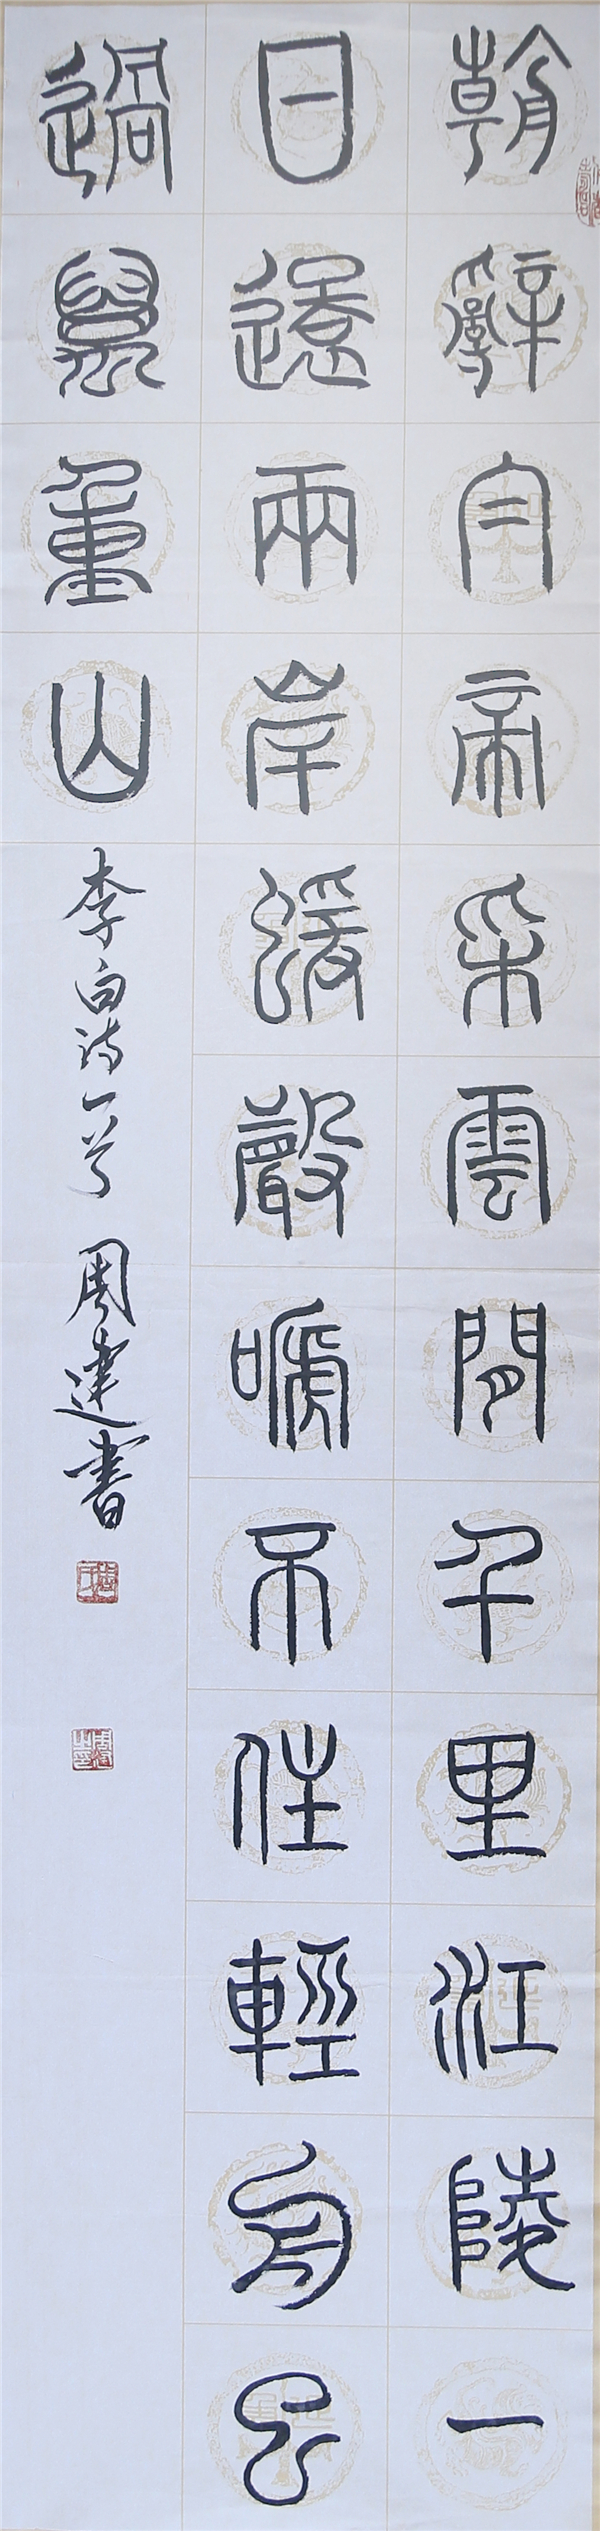 朝辭白帝采雲間千里江陵一
日還兩岸蝯聲嗁不住輕舟已
過萬重山
李白詩一首 周建書